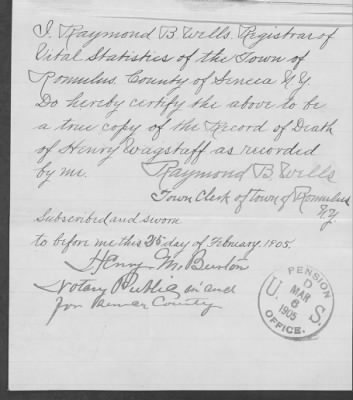 I. Raymond B. Wells. Registrar of
Vital Statistics of the Town of
Romulus. County of Seneca N.Y.
Do hereby certify the above to be
a true copy of the Record of Death
of Henry Wagstaff as recorded
by me. Raymond B. Wells
Town Clerk of town of Romulus
N.Y.
Subscribed and sworn
to before me this day of February. 1905.
Henry M. Burton
Notary Public in and
for Seneca County
PENSION
D
MAR
6
1905
U. S.
OFFICE.